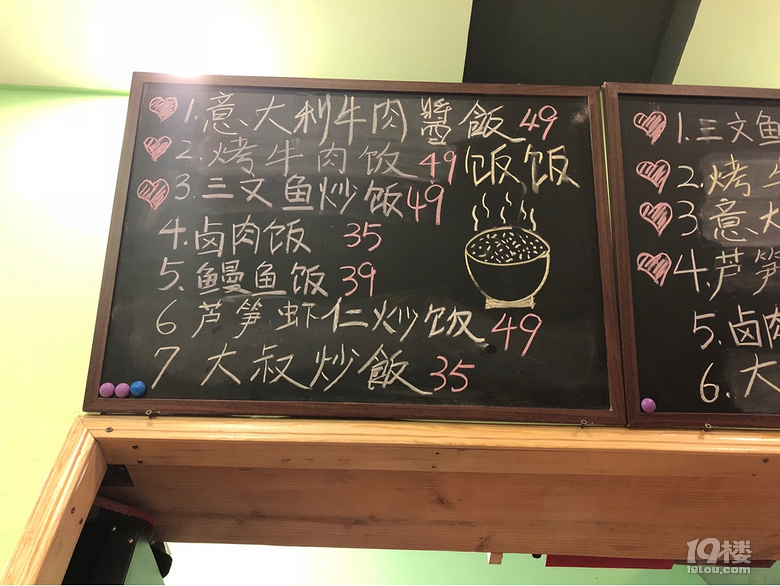 1.意大利牛肉醬飯49
2.烤牛肉饭49
饭饭
3.三文鱼炒饭49
4.卤肉饭 35
5.鳗鱼饭39
6 芦笋虾仁炒饭49
7 大叔炒飯35
1.三文鱼
2.烤牛
3.意大
4.芦笋
5.卤肉
6.大
19楼
19lou.com